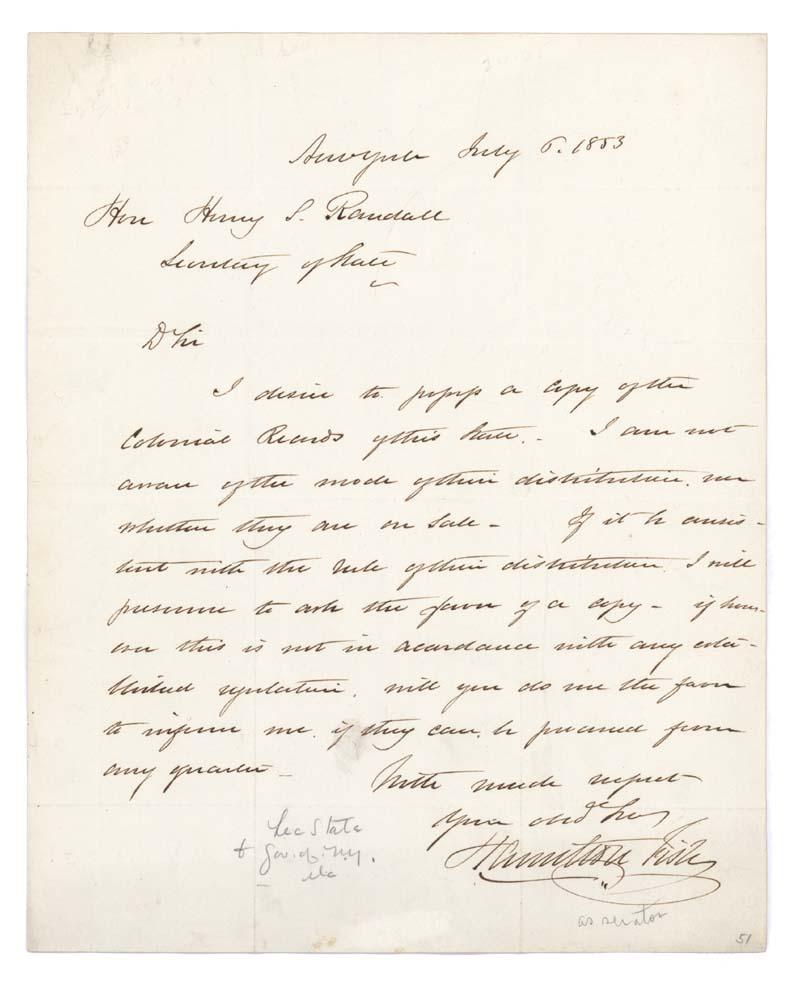 New York July 6. 1853
Hon Henry S. Randall
Secretary of State
D Sir
I desire to possess a copy of the
Colonial Records of this State. - I am not
aware of the mode of their distribution, nor
whether they are on sale - If it be consis-
tent with the rule of their distribution, I will
presume to ask the favor of a copy - if how-
ever this is not in accordance with any esta-
blished regulation, will you do me the favor
to inform me, if they can, be procured from
any quarter -
With much respect
Your obdt Ser
Hamilton Fish
Sec State
& Gov. of N.Y.
etc
as senator
51